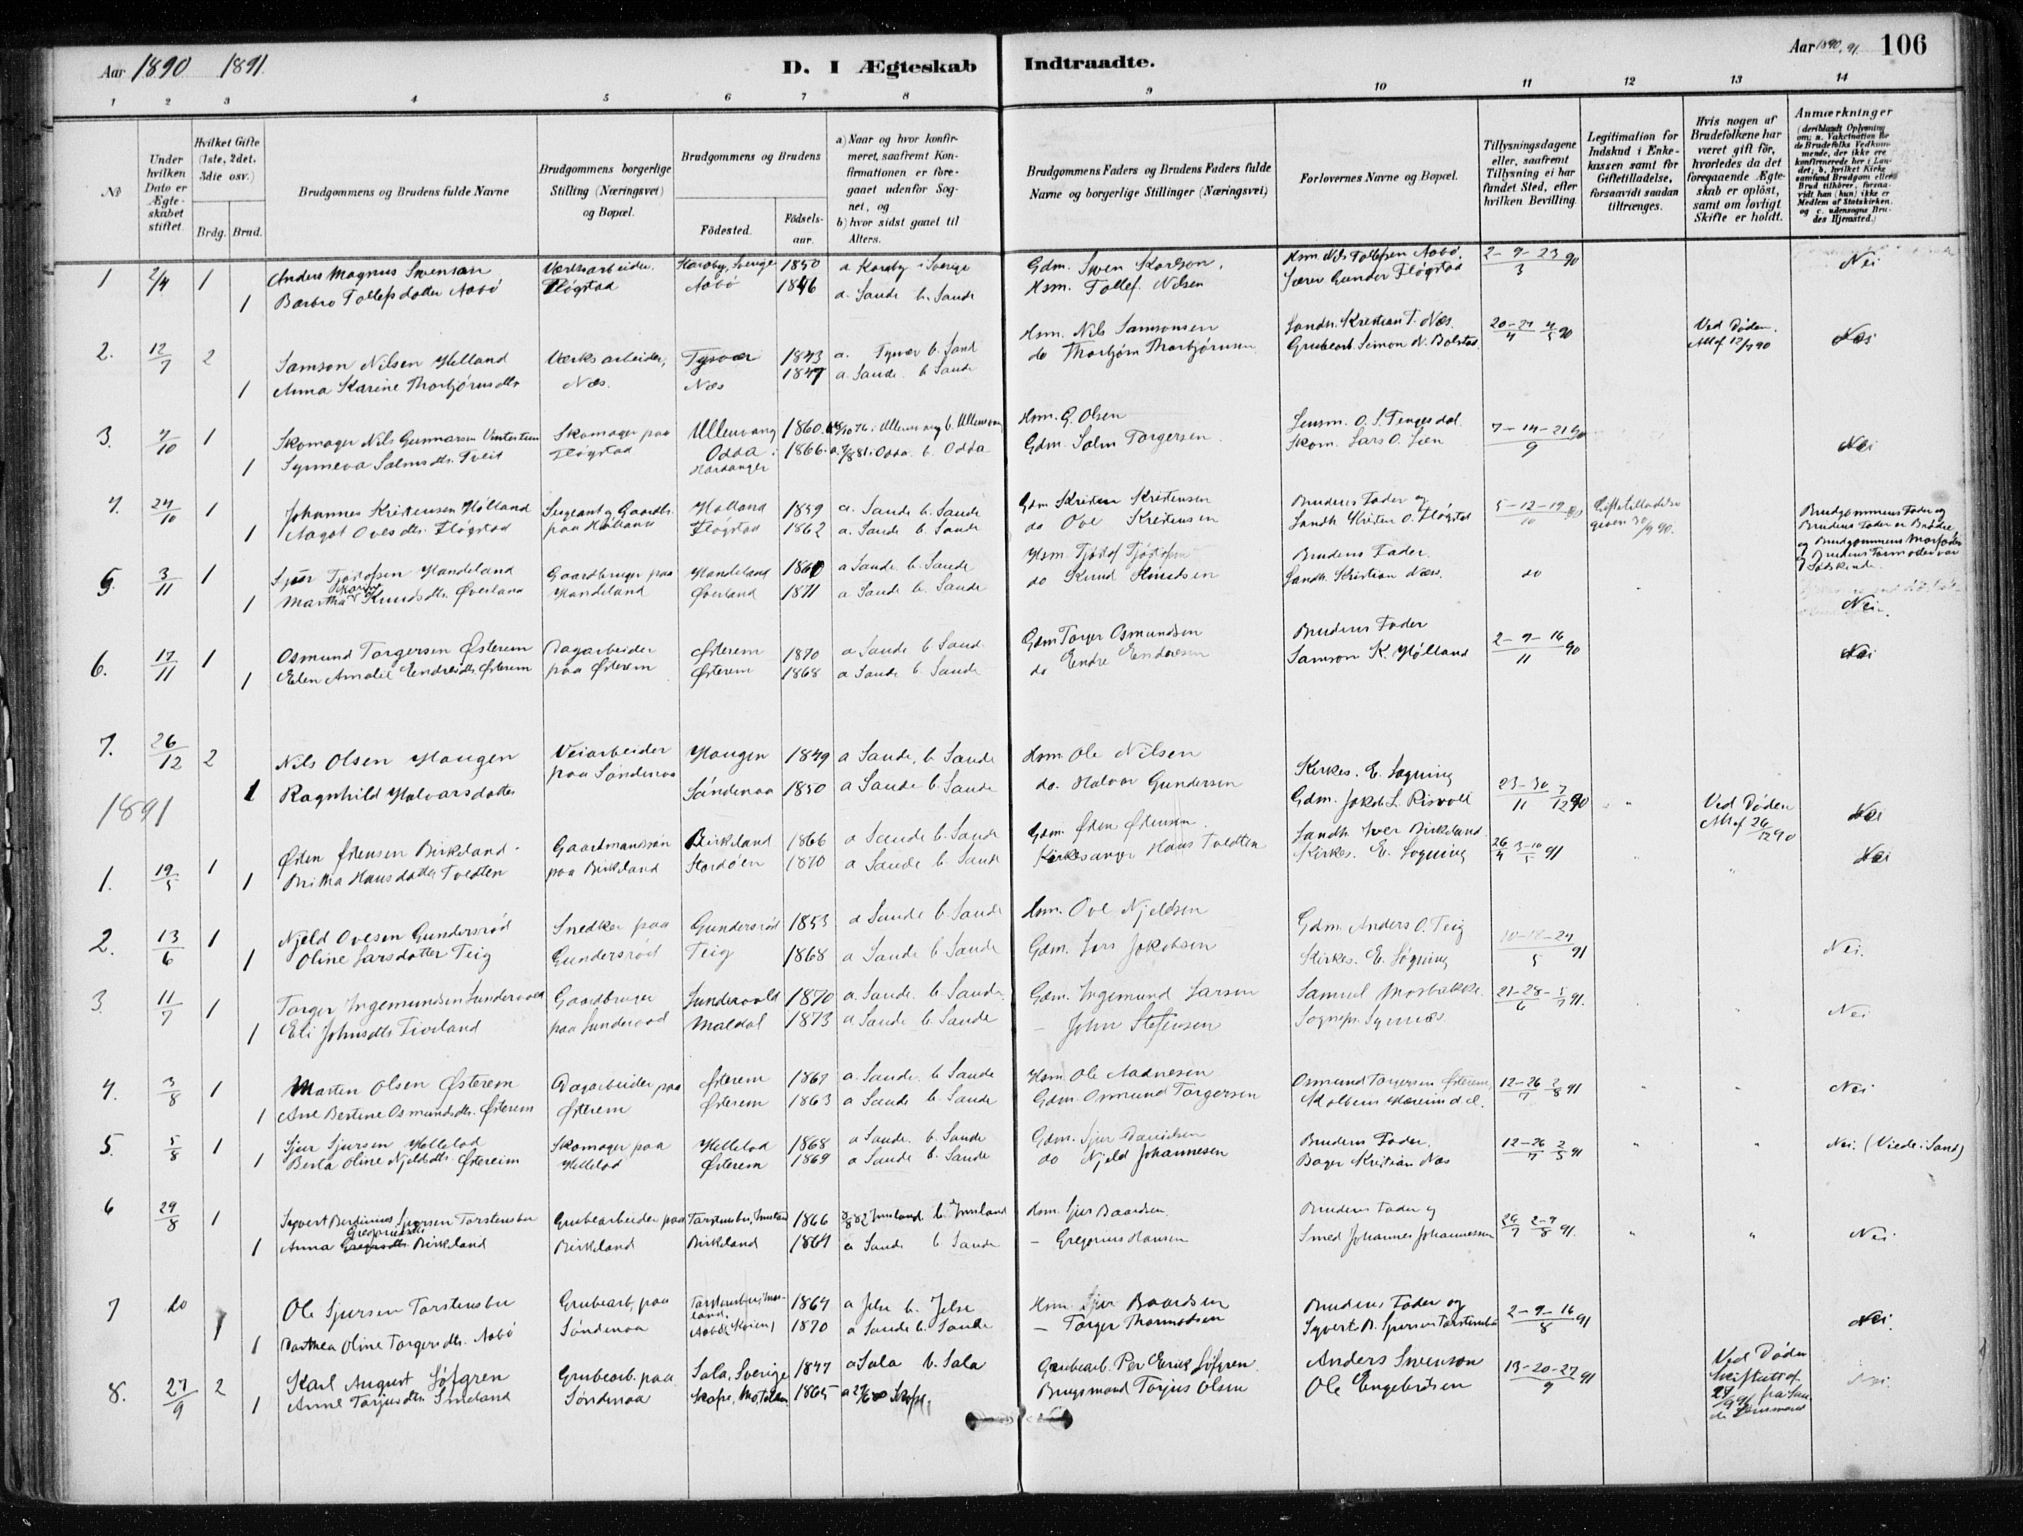 Aar 1890 1891.
D. I Ægteskab Indtraadte.
Aar 1890, 91. 106
1 2 3 4 5 6 7 8 9 10 11 12 13 14
No
Under hvilken Dato er Ægteskabet stiftet.
Hvilket Gifte (1ste, 2det, 3die osv.)
Brdg. Brud.
Brudgommens og Brudens fulde Navne
Brudgommens borgerlige Stilling (Næringsvei) og Bopæl.
Brudgommens og Brudens
Födested.
Födsels-aar.
a) Naar og hvor konfirmeret, saafremt Konfirmationen er foregaaet udenfor Sognet, og
b) hvor sidst gaaet til Alters.
Brudgommens Faders og Brudens Faders fulde Navne og borgerlige Stillinger (Næringsvei)
Forlovernes Navne og Bopæl.
Tillysningsdagene eller, saafremt Tillysning ei har fundet Sted, efter hvilken Bevilling.
Legitimation for Indskud i Enkekassen samt for Giftetilladelse, forsaavidt saadan tiltrænges.
Hvis nogen af Brudefolkene har været gift för, hvorledes da det foregaaende Ægteskab er oplöst, samt om lovligt Skifte er holdt.
Anmærkninger (deriblandt Oplysning om; a. Vakcination for de Brudefolks Vedkommende, der ikke ere konfirmerede her i Landet; b. hvilket Kirkesamfund Brudgom eller Brud tilhører, forsaavidt han (hun) ikke er Medlem af Statskirken, og c. udensogns Brudes Hjemsted.)
1 2/4 1 Anders Magnus Svensan Værksarbeider. Karaby, Sverige 1850 a Karaby i Sverige Gdm. Sven Karlson. Hsm. Nils Tollefsen Aabö. 2-9-23/3 90 Nei
1 Barbro Tollefsdatter Aabö Fløgstad Aabö 1846 a. Sande b. Sande Hsm. Tollef Nilsen Lærer Gunder Fløgstad
2. 12/7 2 Samson Nilsen Helland Værksarbeider, Tysvær 1843 a. Tysvær b. Sand Hsm. Nils Samsonsen Landh. Kristian T. Næs. 20-27/4 4/5 90 Ved Døden. Att af 12/7 90 Nei
1 Anna Karine Thorbjørnsdtr Næs. Næs 1847 a Sande b Sande do Thorbjørn Thorbjørnsen Grubearb. Simon N. Bolstad
3. 7/10 1 Skomager Nils Gunnarsen Vintertun Skomager paa Ullensvang 1860 i Ullensvang b. Ullensvang Hsm. G. Olsen Lensm. O. S. Tengesdal 7-14-21/9 90 Nei
1 Synneva Salmsdtr. Tveit Fløgstad Odda i Hardanger 1866 i Odda b. Odda Gdm. Salm Torgersen. Skom. Lars O. Lien
4. 24/10 1 Johannes Kristensen Hølland Sergeant og Gaardbr. Hølland 1859 a. Sande b. Sande Gdm Kristen Kristensen Brudens Fader og 5-12-19/10 90 Giftetilladelse given 30/9 90. Brudgommens Fader og Brudens Fader er Brødre og Brudgommens Morfader og Brudens Farmoder var Sødskende.
1 Aagot Ovesdtr. Fløgstad paa Hølland Fløgstad 1862 a. Sande b. Sande do Ove Kristensen Landh. Kristen O. Fløgstad
5. 3/11 1 Sjur Tjøstofsen Handeland Gaardbruger paa Handeland 1860 a Sande b. Sande Hsm. Tjøstof Tjøstofsen Brudens Fader. do " " Nei.
1 Martha Knudsdtr. Øverland Handeland Øverland 1871 a Sande b. Sande do Knud Knudsen Landh. Kristian Næs.
6. 17/11 1 Osmund Torgersen Østerem Dagarbeider Østerem 1870 a Sande b Sande Gdm Torger Osmundsen Brudens Fader 2-9-16/11 90 Nei
1 Elen Amalie Endresdtr. Østerem paa Østerem Østerem 1868 a Sande b. Sande do Endre Endresen Samson K. Hølland
7. 26/12 2 Nils Olsen Haugen Veiarbeider Haugen 1849 a Sande, b. Sande Hsm. Ole Nilsen Kirkes. E. Søgning 23-30/11 7/12 90 " " Ved Døden Att af 26/12 90 Nei
1 Ragnhild Halvarsdatter paa Søndenaa Søndenaa 1850 a Sande b. Sande do. Halvar Gundersen Gdm. Jakob L. Risvold
1891
1. 19/5 1 Østen Østensen Birkeland. Gaardmandssøn Birkeland 1866 a Sande b. Sande Gdm. Østen Østensen. Landh. Iver Birkeland. 26/4 3-10/5 91 " " Nei
1 Britha Hansdatter Tvedten paa Birkeland Stordøen 1870 a Sande b. Sande Kirkesanger Hans Tvedten Kirkes. E. Søgning
2. 13/6 1 Njeld Ovesen Gundersrød Snedker paa Gundersrød 1853 a Sande b. Sande Hsm. Ove Njeldsen Gdm. Anders O. Teig 10-18-24/5 91 Nei.
1 Oline Larsdatter Teig Gundersrød Teig 1868 a Sande b. Sande Gdm. Lars Jakobsen Kirkes. E. Søgning
3. 11/7 1 Torger Ingemundsen Sundervold Gaardbruger Sundervold 1870 a. Sande. b. Sande. Gdm. Ingemund Larsen Samuel Mosbakke. 21-28/6 - 5/7 91. " Nei
1 Eli Johnsdtr Tiorland paa Sundervold Maldal 1873 a Sande b. Sande - John Stefensen Sognepr. Synnæs
4. 3/8 1 Marten Olsen Østerem Dagarbeider paa Østerem 1867 a. Sande b. Sande Hsm. Ole Aadnesen Osmund Torgersen Østerem, 12-26/7 2/8 91 " " Nei
1 Ane Bertine Osmundsdtr. Østerem Østerem Østerem 1863 a Sande b. Sande Gdm. Osmund Torgersen
5. 5/8 1 Sjur Sjursen Hellelod Skomager paa Hellelod 1868 a Sande. b. Sande Gdm. Sjur Davidsen Brudens Fader. 12-26/7 2/8 91 " " Nei. (Viede i Sand)
1 Berta Oline Njeldsdtr. Østereim Hellelod Østerem 1869 a Sande b. Sande do Njeld Johannesen Bager Kristian Næs
6 29/8 1 Syvert Berdinius Sjursen Torstensbu Grubearbeider paa Torstensbu, Imsland 1866 Imsland b. Imsland Hsm. Sjur Baardsen. Brudens Fader og 26/7 2-9/8 91. " " Nei.
1 Anna Gregoriusdtr. Birkeland Birkeland Birkeland 1864 a Sande b Sande - Gregorius Hansen Smed Johannes Johannessen
7 do 1 Ole Sjursen Torstensbu Grubearb. paa Torstensbu, Imsland 1864 a Jelse b. Jelse Hsm Sjur Baardsen Brudens Fader og 2-9-16/8 91 Nei.
1 Dorthea Oline Torgersdtr. Aabö Søndenaa Aabö 1870 a Sande b. Sande - Torger Thormodsen Syvert B. Sjursen Torstensbu
8. 27/9 2 Karl August Løfgren Grubearb. paa Sala, Sverige 1847 a Sala b. Sala Grubearb. Per Erik Løfgren. Anders Svenson 13-20-27/9 91 Ved Døden Skifteatt af 24/9 91 Nei.
1 Anne Torjusdtr. Smeland Søndenaa 1865 Brugsmand Torjus Olsen Ole Engebretsen